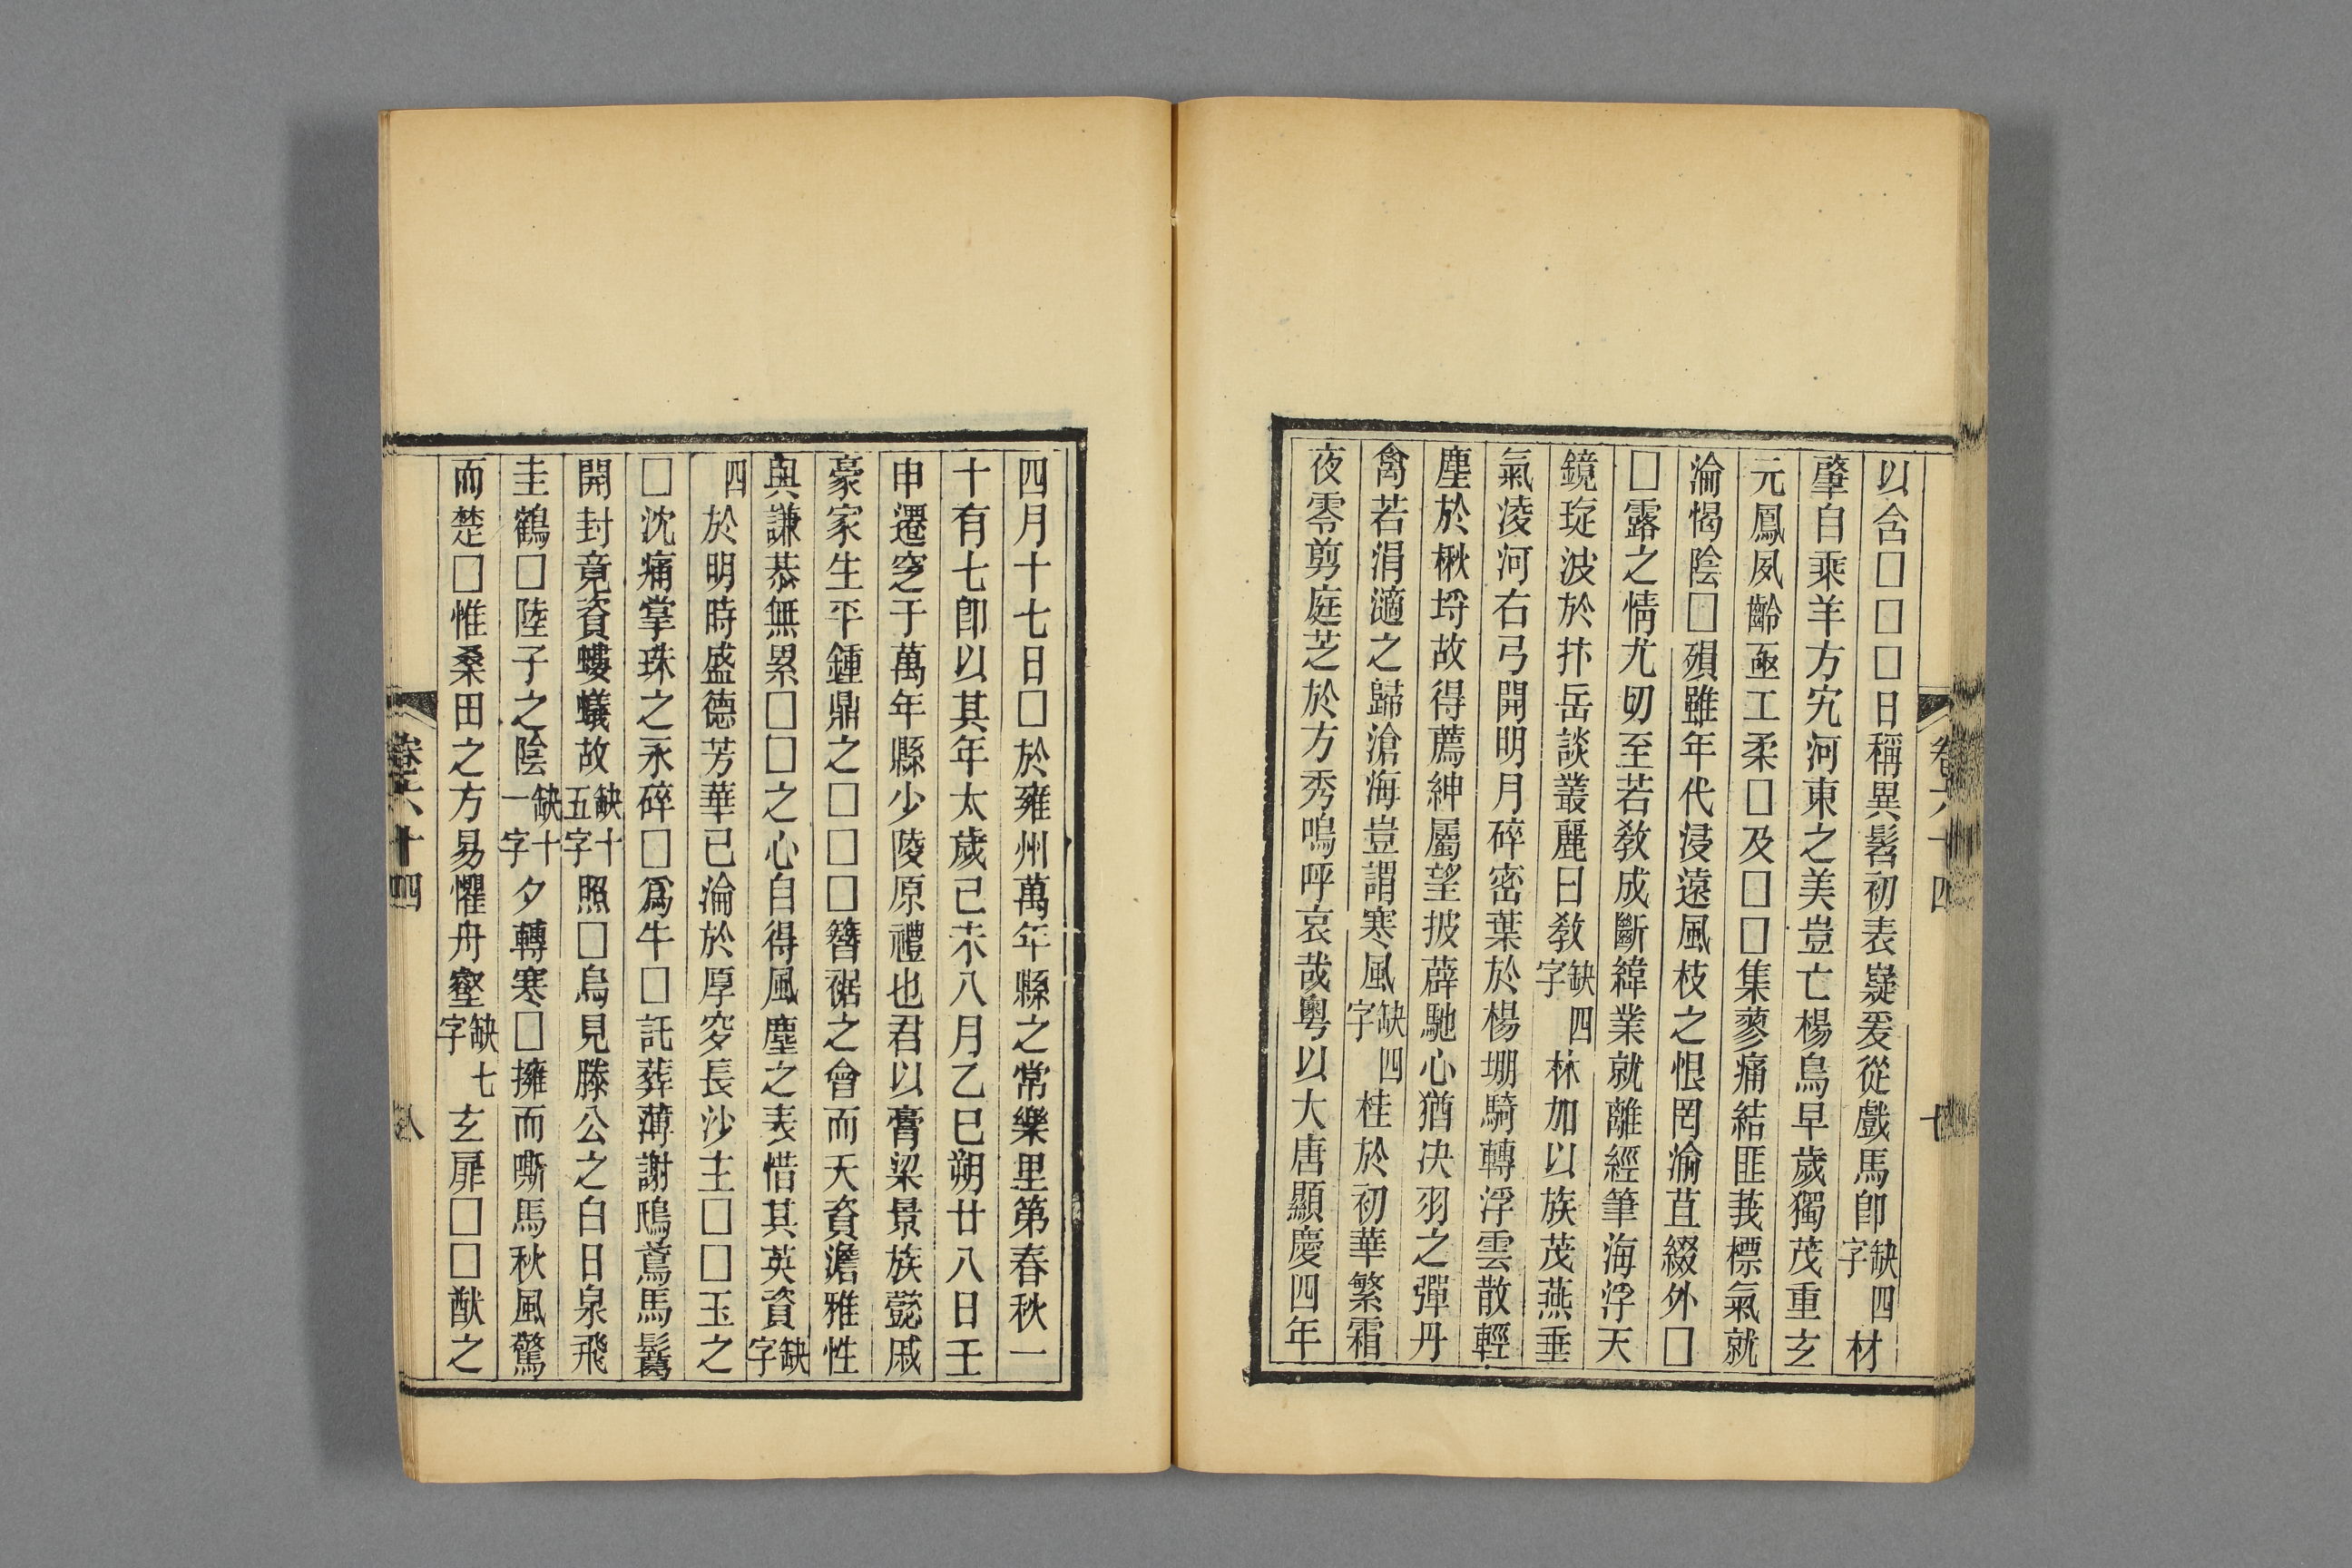 以含□□□日稱異髫初表嶷爰從戲馬卽缺四字材
肇自乘羊方宄河東之美豈亡楊烏早歲獨茂重玄
元鳳夙齡亟工柔□及□□集蓼痛結匪莪標氣就
淪愒陰□殞雖年代浸遠風枝之恨罔渝苴綴外□
□露之情尤切至若敎成斷緯業就離經筆海浮天
鏡琁波於抃岳談叢麗日敎缺四字林加以族茂燕垂
氣淩河右弓開明月碎密葉於楊堋騎轉浮雲散輕
塵於楸埒故得薦紳屬望披薜馳心猶决羽之彈丹
禽若涓澮之歸滄海豈謂寒風缺四字桂於初華繁霜
夜零剪庭芝於方秀嗚呼哀哉粵以大唐顯慶四年
卷六十四
七
四月十七日□於雍州萬年縣之常樂里第春秋一
十有七卽以其年太歲己未八月乙巳朔廿八日壬
申遷窆于萬年縣少陵原禮也君以膏粱景族懿戚
豪家生平鍾鼎之□□□簪裾之會而天資澹雅性
與謙恭無累□□之心自得風塵之表惜其英資缺四字
於明時盛德芳華已淪於厚穸長沙主□□玉之
□沈痛掌珠之永碎□爲牛□託葬薄謝鴟鳶馬鬣
開封竟資螻蟻故缺十五字照□烏見滕公之白日泉飛
圭鶴□陸子之陰缺十一字夕轉寒□擁而嘶馬秋風驚
而楚□惟桑田之方易懼舟壑缺七字玄扉□□猷之
卷六十四
八